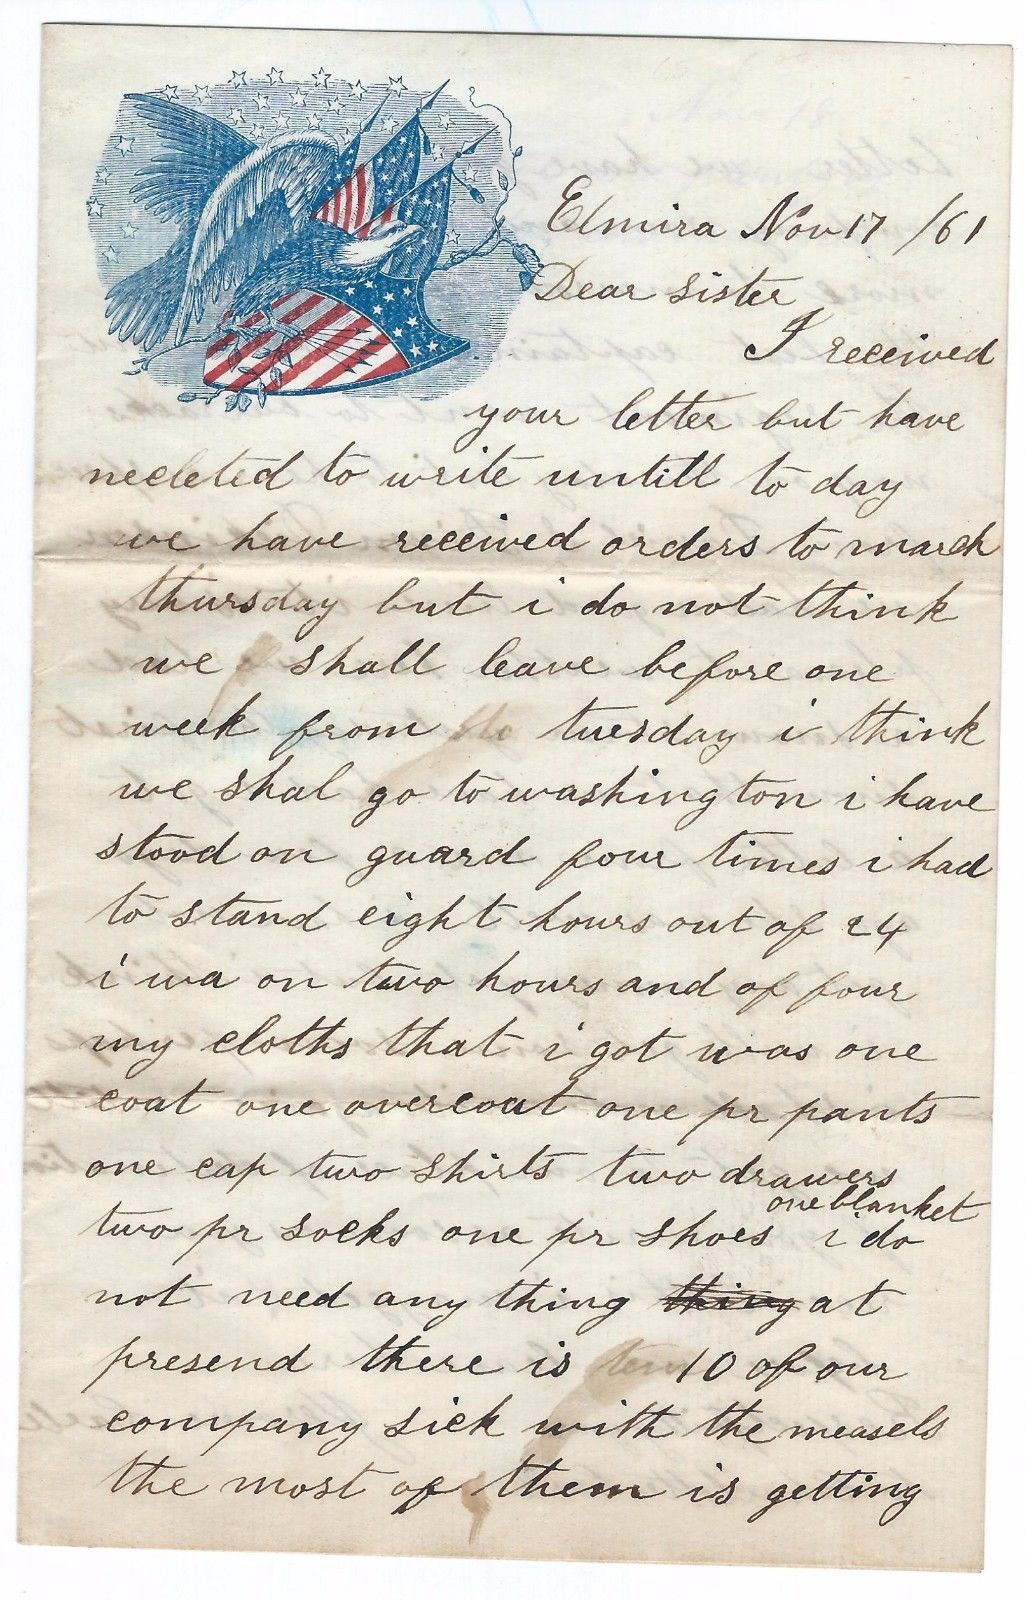 Elmira Nov 17 /61
Dear sister
I received
your letter but have
necleted to write untill to day
we have received orders to march
thursday but i do not think
we shall leave before one
week from tuesday i think
we shal go to washington i have
stood on guard four times i had
to stand eight hours out of 24
i wa on two hours and of four
my cloths that i got was one
coat one overcoat one pr pants
one cap two shirts two drawers
one blanket
two pr socks one pr shoes i do
not need any thing thing at
presend there is ten 10 of our
company sick with the measels
the most of them is getting